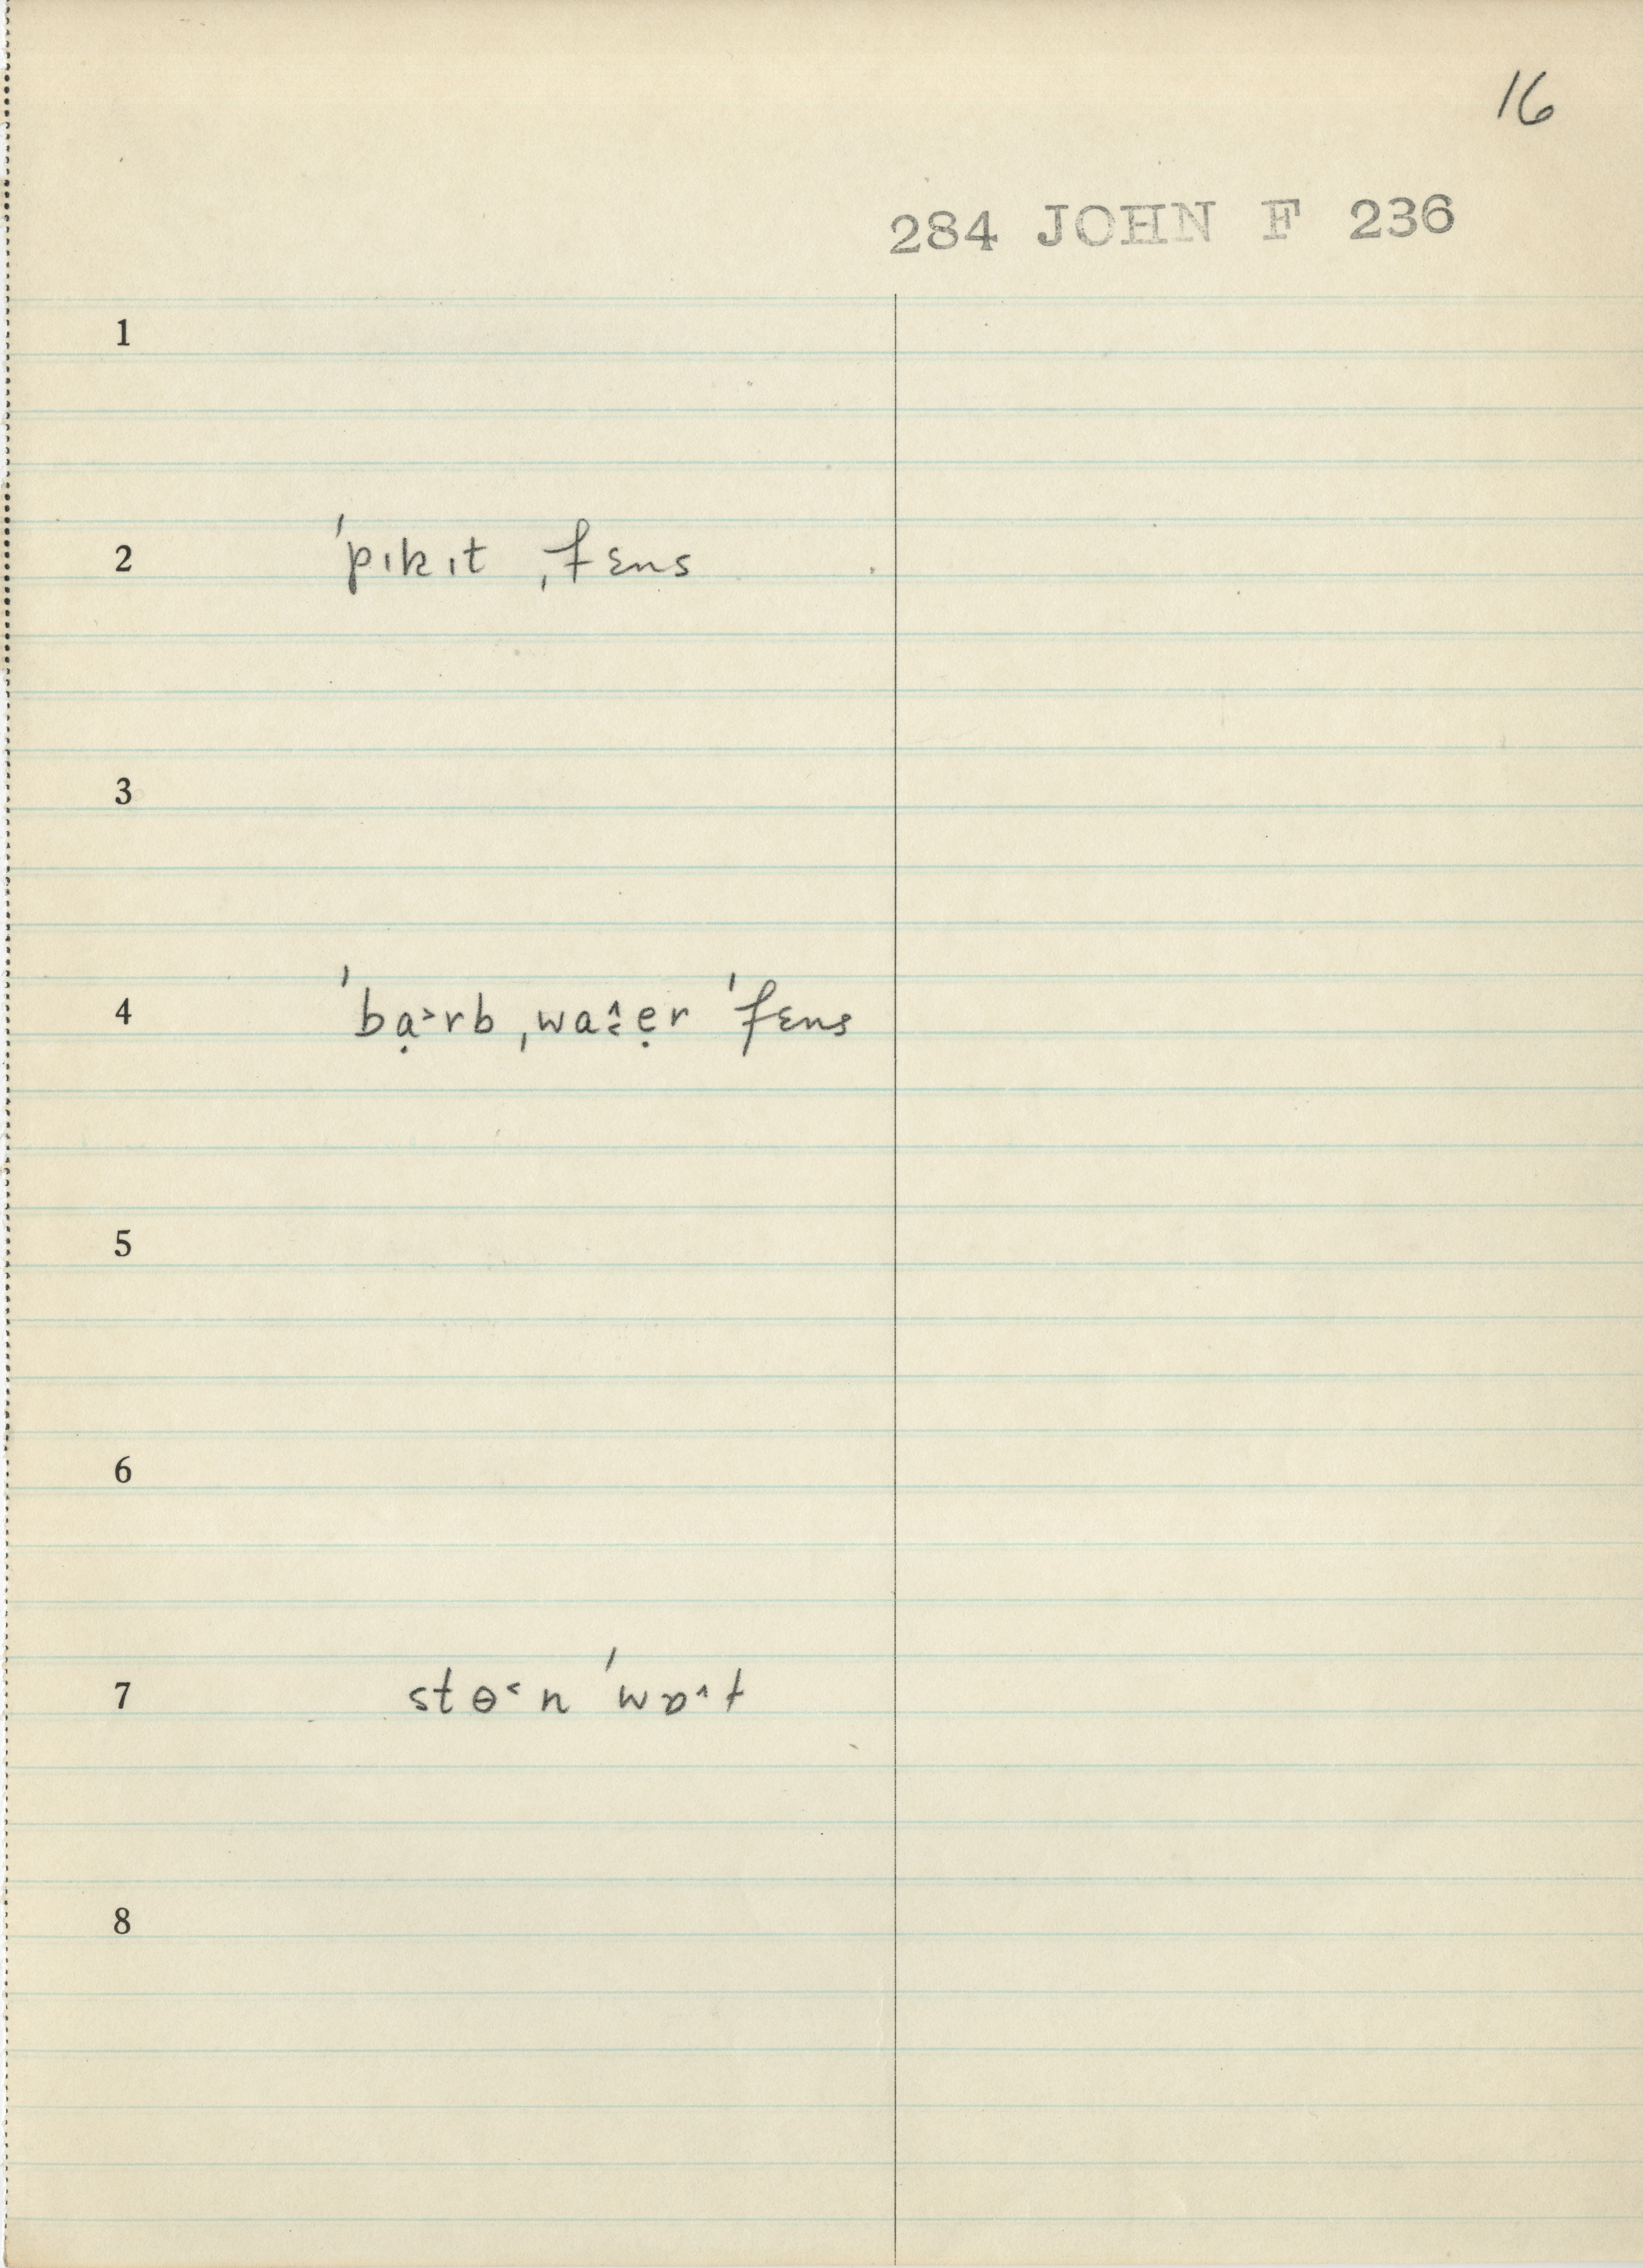 16
284 JOHN F 236
1
2 ˈpɪkɪt ˌfɛns
3
4 ˈbạ˃rb ˌwaƨ̂ẹr ˈfɛns
5
6
7 stɵ˂n ˈwɒ˄ɫ
8